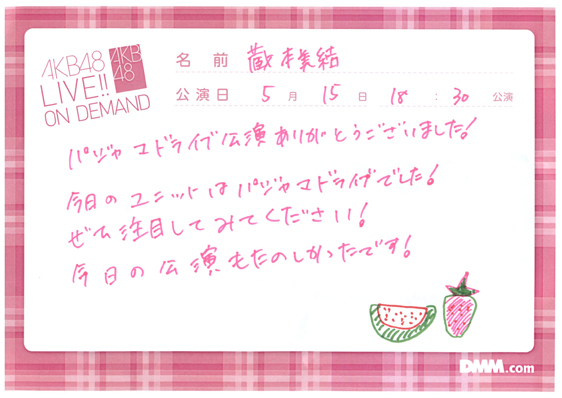 AKB48
LIVE!!
ON DEMAND
AKB
48
名前 蔵本美結
公演日 5月 15日 18:30 公演
パジャマドライブ公演ありがとうございました!
今日のユニットはパジャマドライブでした!
ぜひ注目してみてください!
今日の公演もたのしかったです!
DMM.com